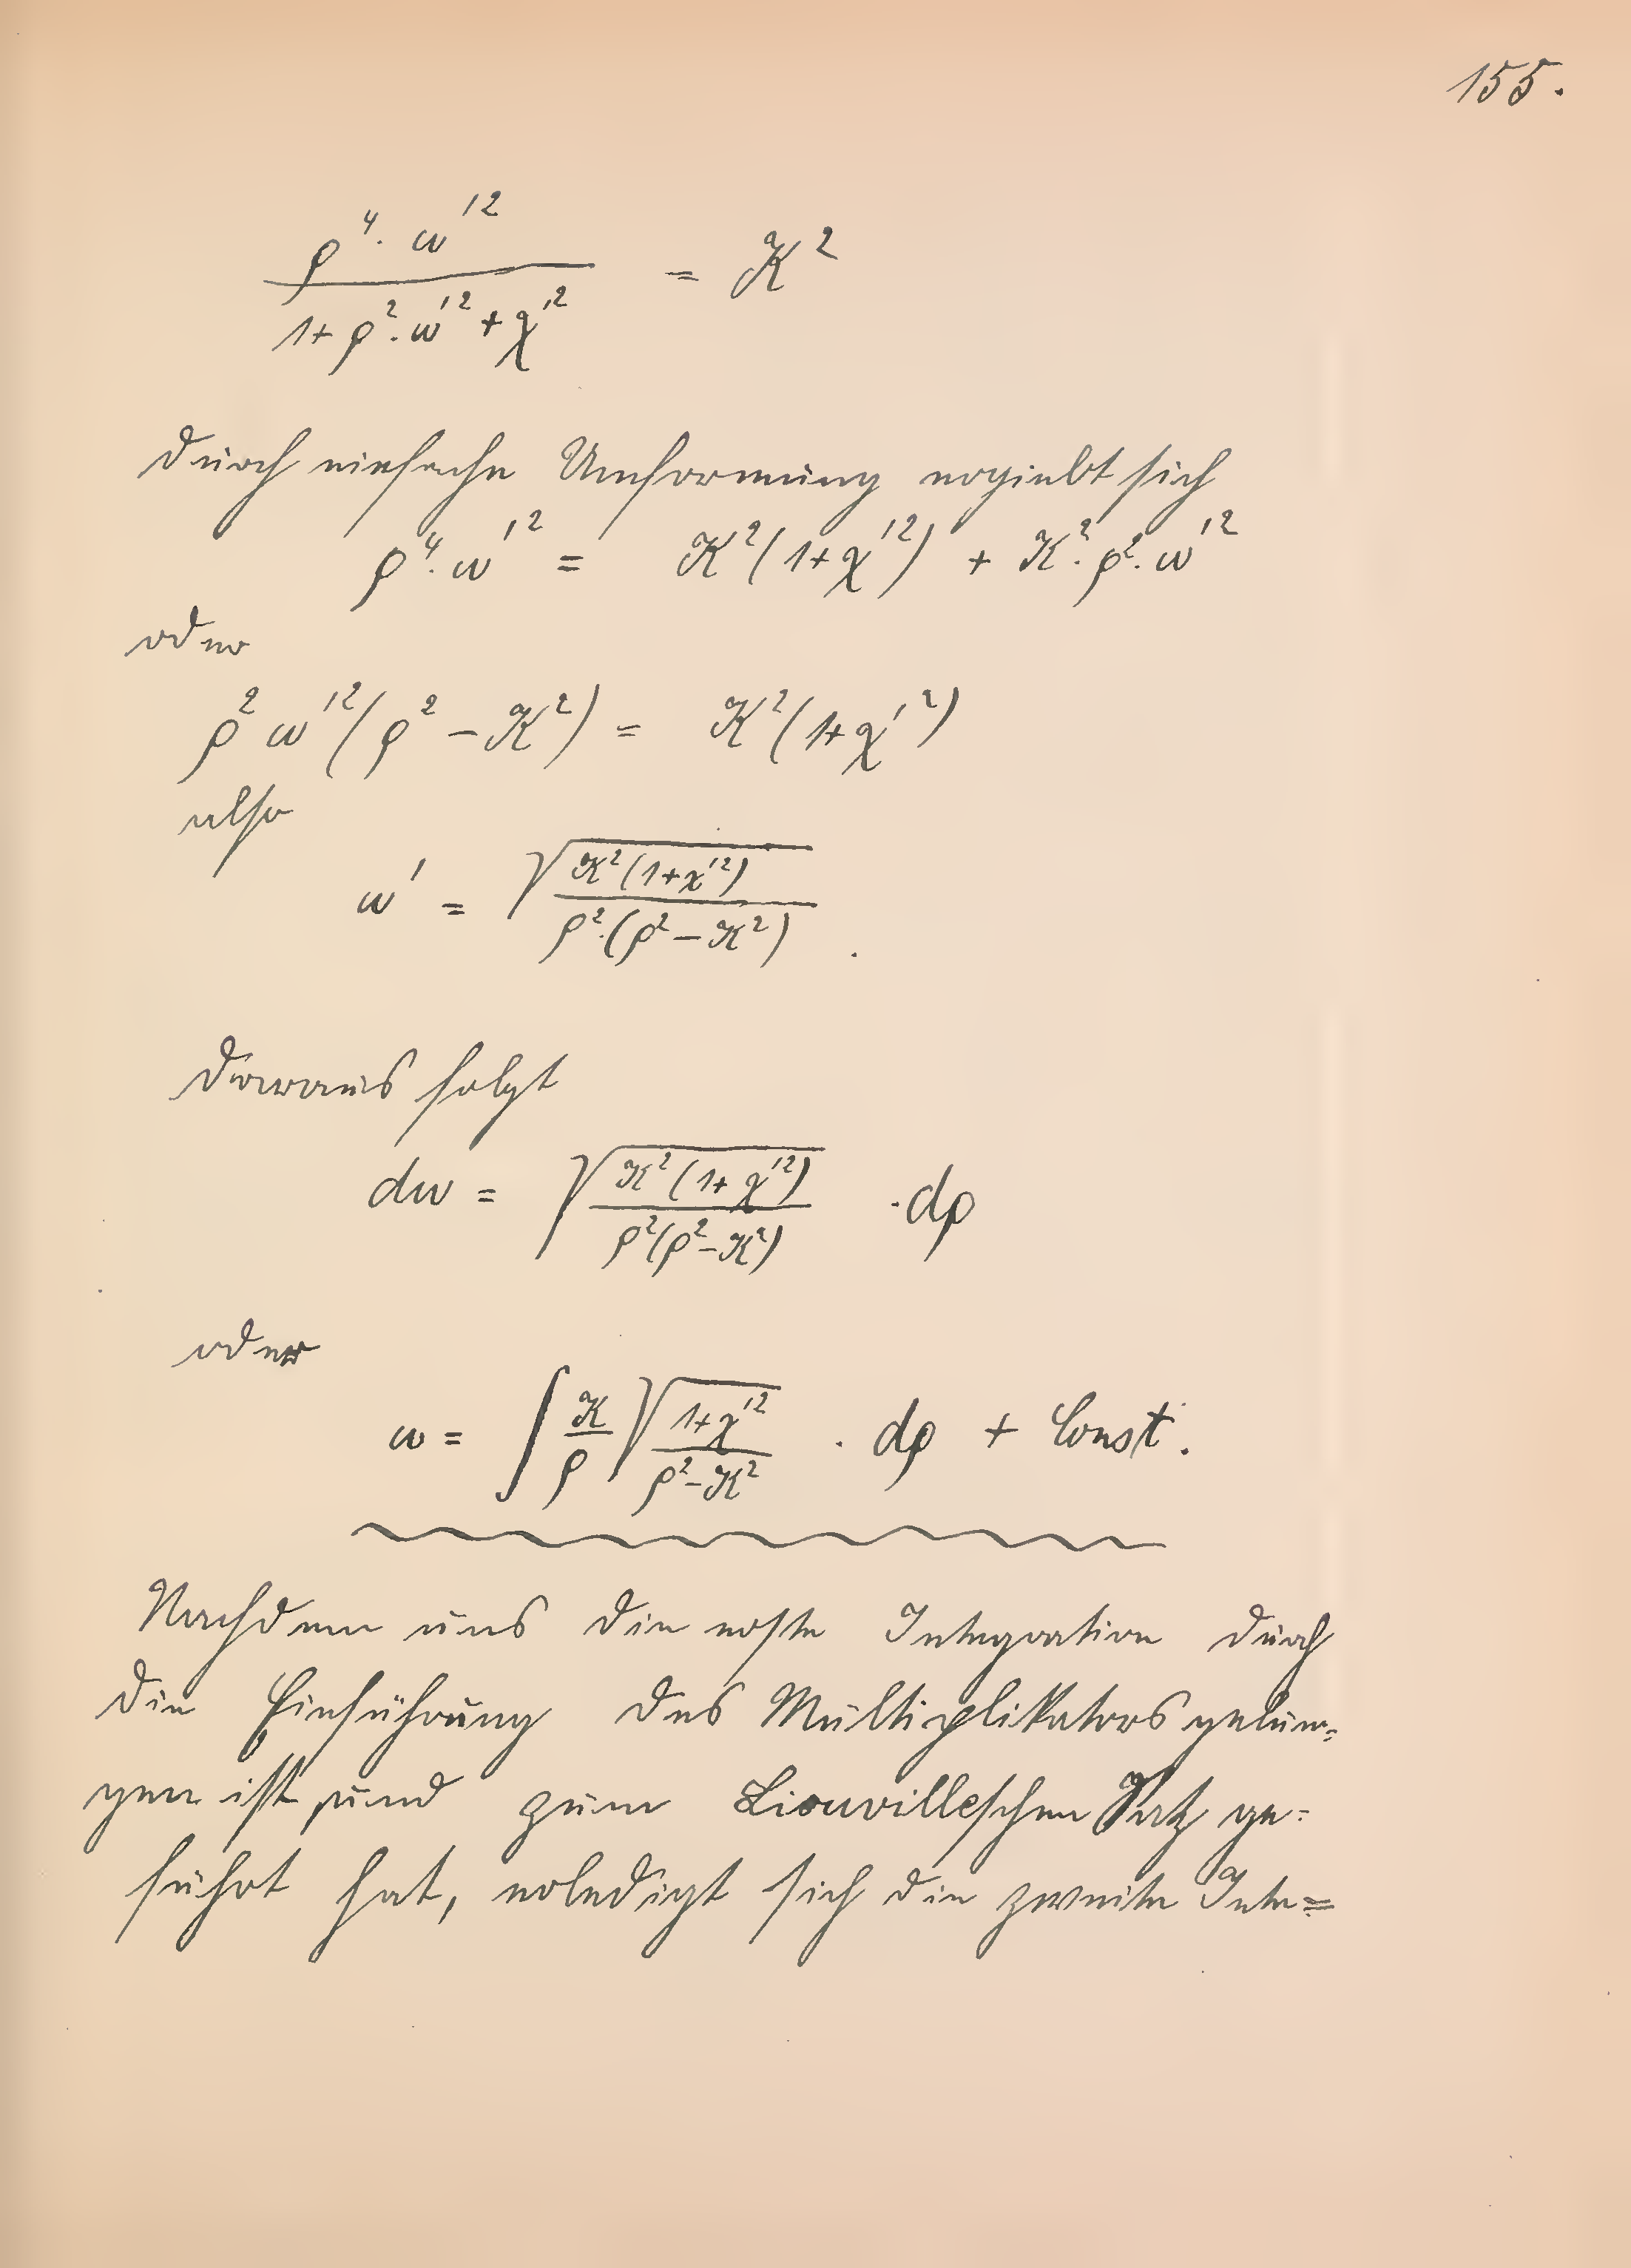 155.
ρ⁴· w'² / (1+ρ²·w'²+χ'²) = K²
durch einfache Umformung ergiebt sich
ρ⁴·w'² = K²(1+χ'²) + K²·ρ²·w'²
oder
ρ² w'²(ρ²−K²) = K²(1+χ'²)
also
w' = √(K²(1+χ'²) / ρ²·(ρ²−K²)) .
daraus folgt
dw = √(K²(1+χ'²) / ρ²(ρ²−K²)) ·dρ
oder
w = ∫ K/ρ √((1+χ'²) / (ρ²−K²)) · dρ + Const.
Nachdem uns die erste Integration durch
die Einführung des Multiplikators gelun=
gen ist und zum Liouvilleschen Satz ge=
führt hat, erledigt sich die zweite Inte=